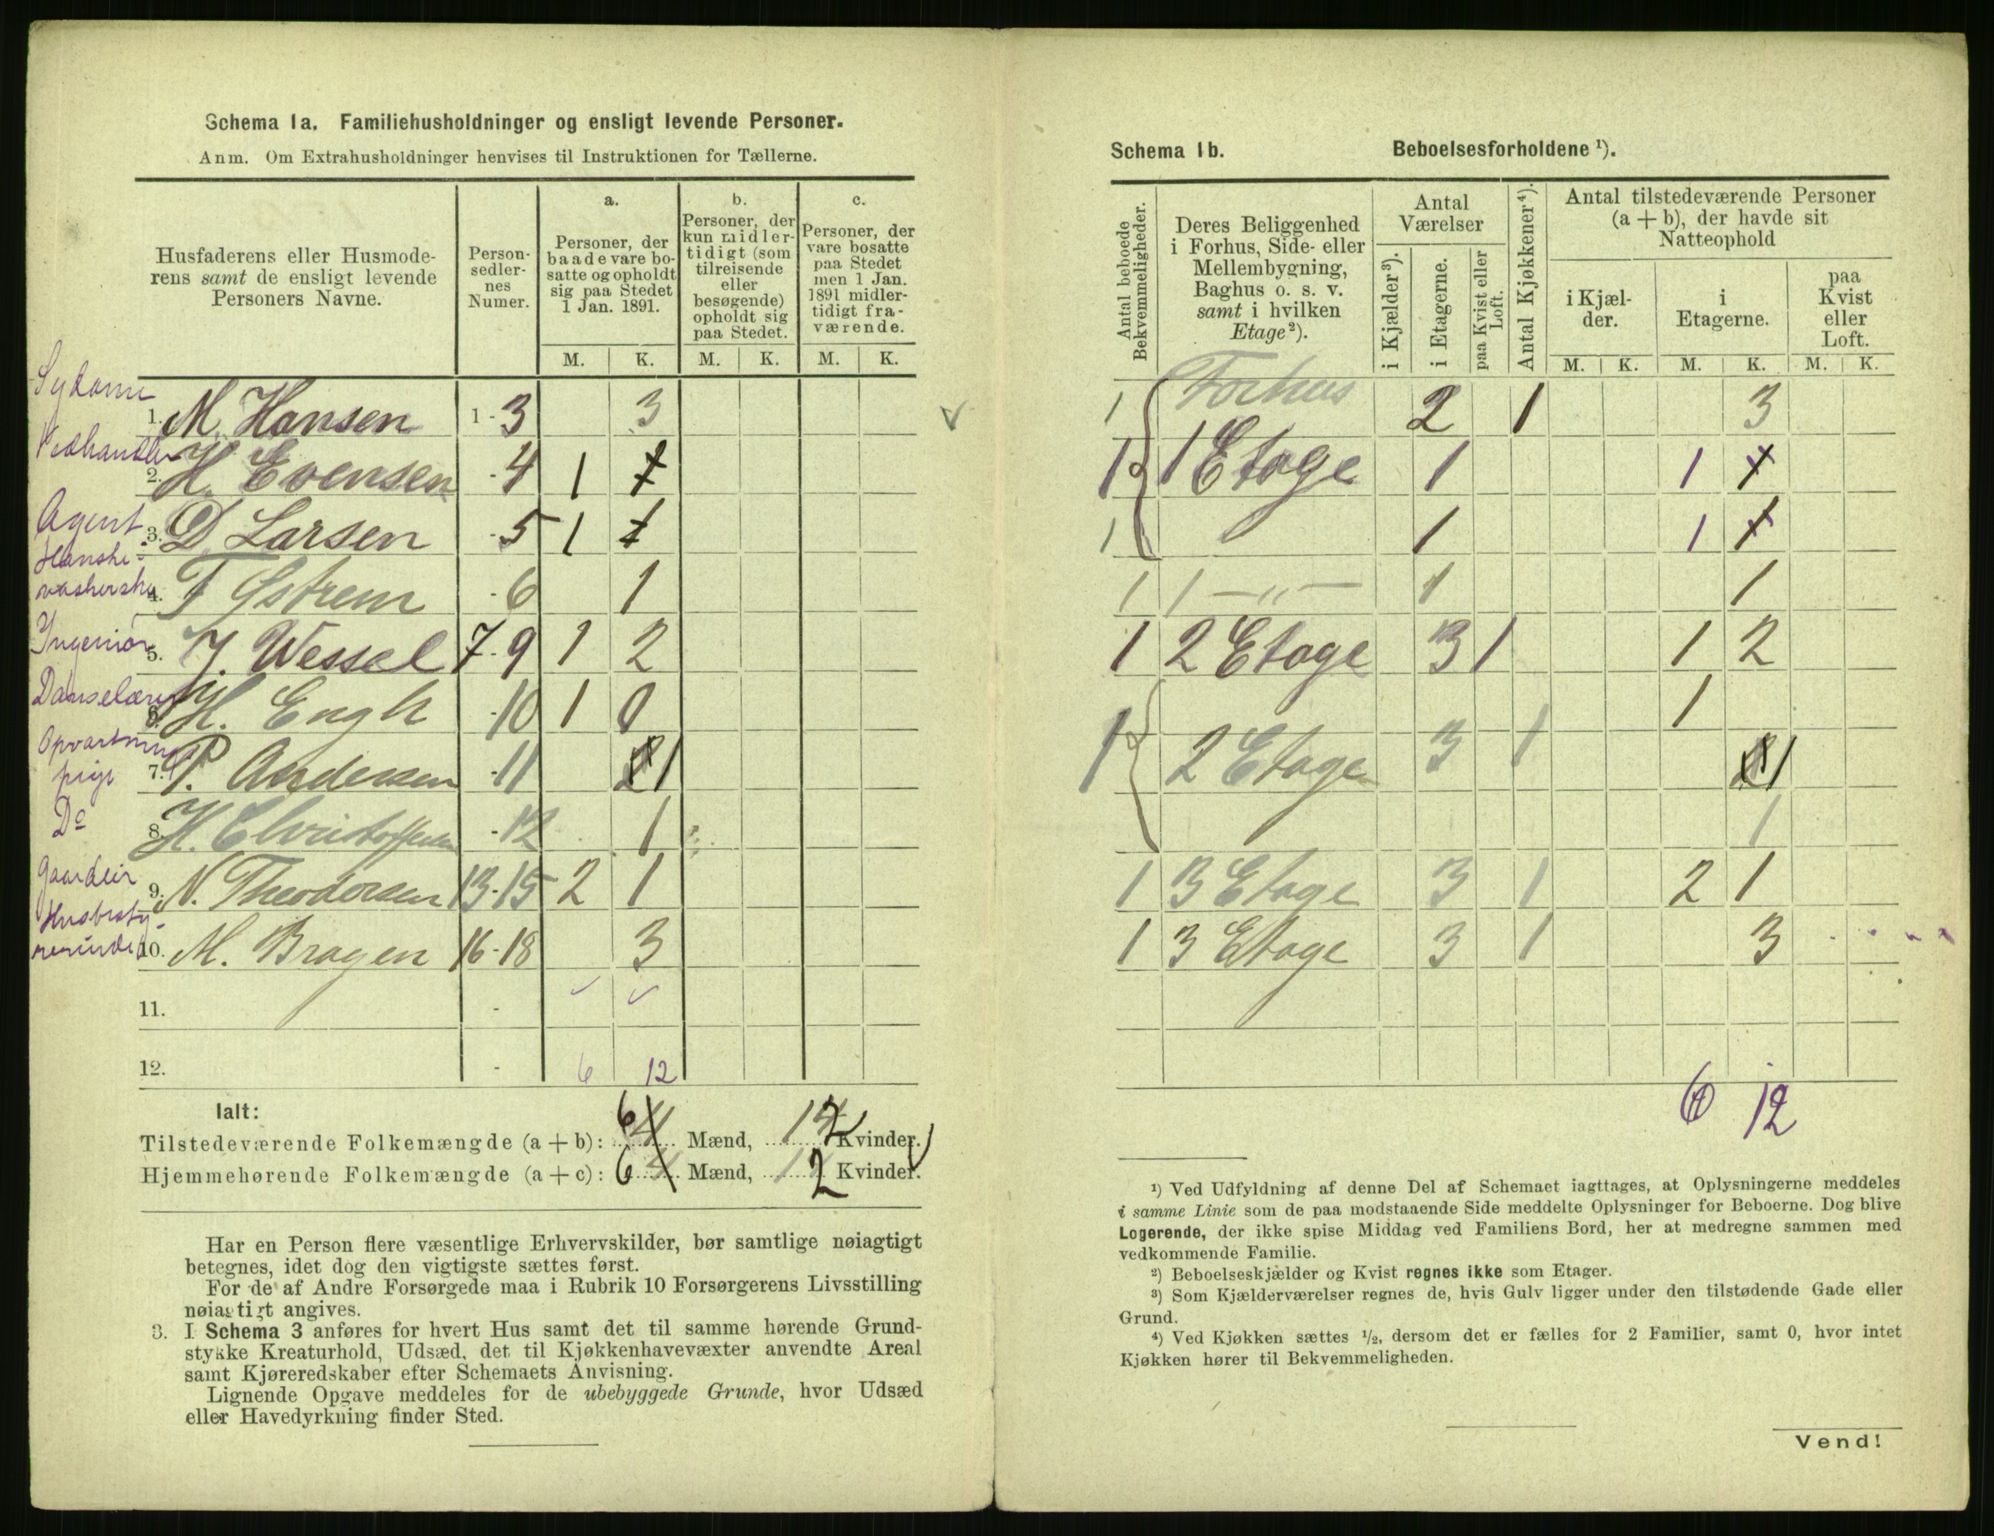 Schema 1a. Familiehusholdninger og ensligt levende Personer.
Anm. Om Extrahusholdninger henvises til Instruktionen for Tællerne.
Husfaderens eller Husmoderens samt de ensligt levende Personers Navne.
Personsedlernes Numer.
a.
Personer, der baade vare bosatte og opholdt sig paa Stedet 1 Jan. 1891.
b.
Personer, der kun midlertidigt (som tilreisende eller besøgende) opholdt sig paa Stedet.
c.
Personer, der vare bosatte paa Stedet men 1 Jan. 1891 midlertidigt fraværende.
M. K. M. K. M. K.
Sydame
1. M. Hansen 1-3 3
Vedhandler
2. H. Evensen -4 1
Agent
3. D. Larsen -5 1
Hanskevasherske
4. F Ystrem -6 1
Ingeniør
5. J. Wessel 7-9 1 2
Danselærer
6. H. Engh -10 1 0
Opvartningspige
7. P. Andersen -11 1
Do
8. H. Christoffersen -12 1
Gaardeier
9. N. Theodorsen 13-15 2 1
Husbestyrerinde
10. M. Bragen 16-18 3
11. -
12. - 6 12
Ialt:
Tilstedeværende Folkemængde (a + b): 6 Mænd, 12 Kvinder.
Hjemmehørende Folkemængde (a + c): 6 Mænd, 12 Kvinder.
Har en Person flere væsentlige Erhvervskilder, bør samtlige nøiagtigt
betegnes, idet dog den vigtigste sættes først.
For de af Andre Forsørgede maa i Rubrik 10 Forsørgerens Livsstilling
nøiagtigt angives.
3. I Schema 3 anføres for hvert Hus samt det til samme hørende Grund-
stykke Kreaturhold, Udsæd, det til Kjøkkenhavevæxter anvendte Areal
samt Kjøreredskaber efter Schemaets Anvisning.
Lignende Opgave meddeles for de ubebyggede Grunde, hvor Udsæd
eller Havedyrkning finder Sted.
Schema 1b. Beboelsesforholdene ¹).
Antal beboede Bekvemmeligheder.
Deres Beliggenhed i Forhus, Side- eller Mellembygning, Baghus o. s. v. samt i hvilken Etage²).
Antal Værelser
i Kjælder³).
i Etagerne.
paa Kvist eller Loft.
Antal Kjøkkener⁴).
Antal tilstedeværende Personer (a + b), der havde sit Natteophold
i Kjælder.
i Etagerne.
paa Kvist eller Loft.
M. K. M. K. M. K.
1 Forhus 2 1 3
1 1 Etage 1 1
1 1 1
1 1 —„— 1 1
1 2 Etage 3 1 1 2
1
1 2 Etage 3 1 1
1
1 3 Etage 3 1 2 1
1 3 Etage 3 1 3
6 12
¹) Ved Udfyldning af denne Del af Schemaet iagttages, at Oplysningerne meddeles
i samme Linie som de paa modstaaende Side meddelte Oplysninger for Beboerne. Dog blive
Logerende, der ikke spise Middag ved Familiens Bord, her at medregne sammen med
vedkommende Familie.
²) Beboelseskjælder og Kvist regnes ikke som Etager.
³) Som Kjælderværelser regnes de, hvis Gulv ligger under den tilstødende Gade eller
Grund.
⁴) Ved Kjøkken sættes ½, dersom det er fælles for 2 Familier, samt 0, hvor intet
Kjøkken hører til Bekvemmeligheden.
Vend!